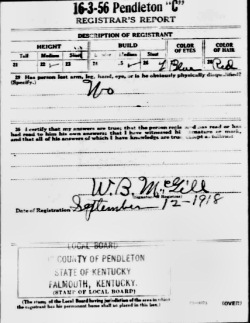 16-3-56 Pendleton "C"
REGISTRAR'S REPORT
DESCRIPTION OF REGISTRANT
HEIGHT BUILD COLOR OF EYES COLOR OF HAIR
Tall Medium Short Slender Medium Stout
L Blue Red
29 Has person lost arm, leg, hand, eye, or is he obviously physically disqualified?
(Specify.)
No
30 I certify that my answers are true; that the person registered has read or has
had read to him his own answers; that I have witnessed his signature or mark,
and that all of his answers of which I have knowledge are true, except as follows:
W. B. McGill
Date of Registration September 12-1918
LOCAL BOARD
COUNTY OF PENDLETON
STATE OF KENTUCKY
FALMOUTH, KENTUCKY.
(STAMP OF LOCAL BOARD)
(The stamp of the Local Board having jurisdiction of the area in which
the registrant has his permanent home shall be placed in this box.)
(OVER)